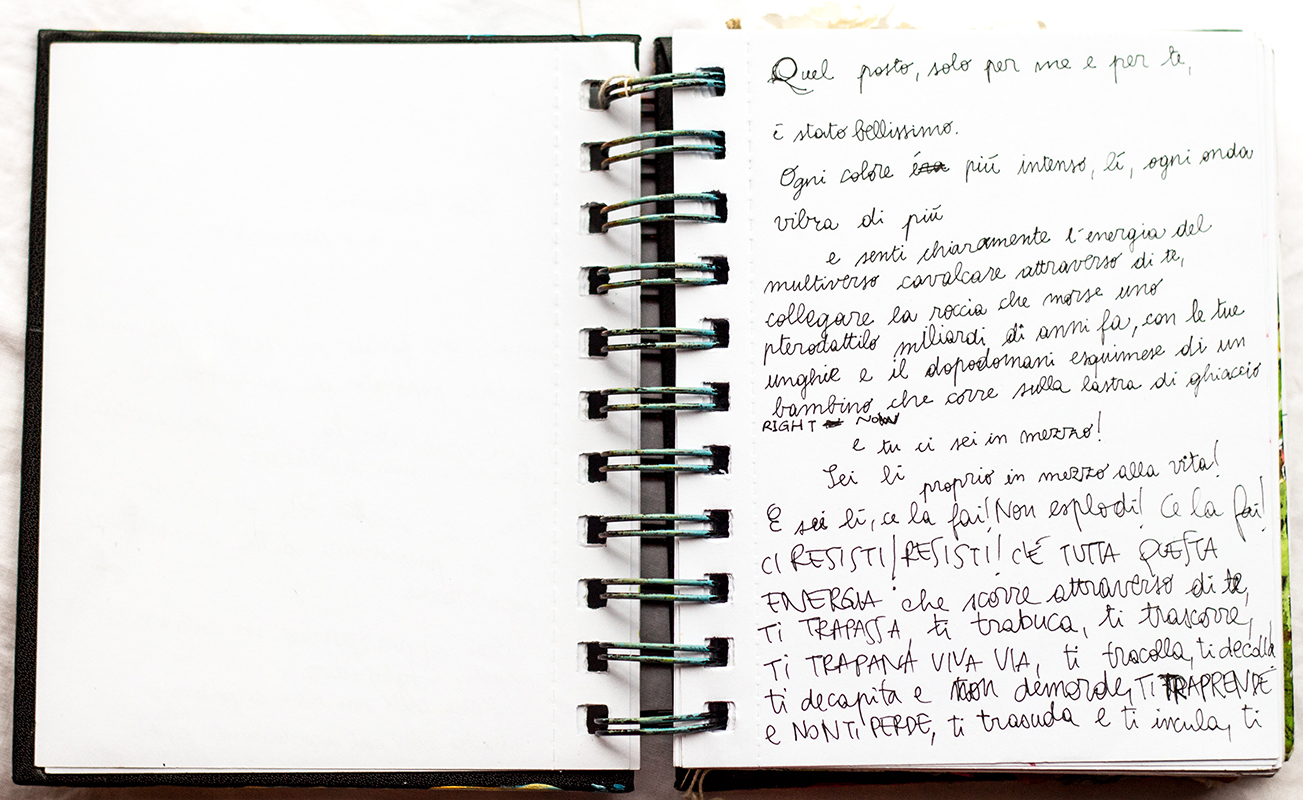 Quel posto, solo per me e per te,
è stato bellissimo.
Ogni colore è più intenso, lì, ogni onda
vibra di più
e senti chiaramente l'energia del
multiverso cavalcare attraverso di te,
collegare la roccia che morse uno
pterodattilo miliardi di anni fa, con le tue
unghie e il dopodomani esquimese di un
bambino che corre sulla lastra di ghiaccio
RIGHT NOW
e tu ci sei in mezzo!
Sei lì proprio in mezzo alla vita!
E sei lì, ce la fai! Non esplodi! Ce la fai!
CI RESISTI! RESISTI! C'È TUTTA QUESTA
ENERGIA che scorre attraverso di te,
TI TRAPASSA, ti trabuca, ti trascorre,
TI TRAPANA VIVA VIA, ti tracolla, ti decolla
ti decapita e non demorde, TI TRAPRENDE
e NON TI PERDE, ti trasuda e ti incula, ti